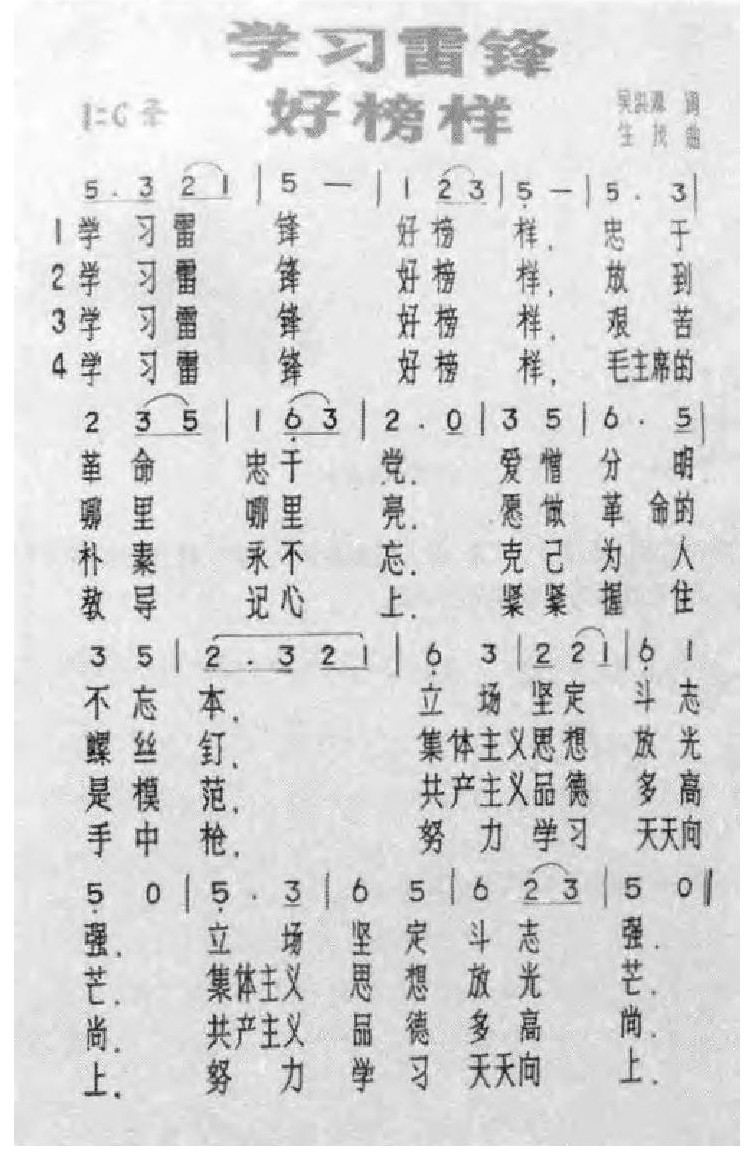 学习雷锋
好榜样
1=G
吴洪源 词
生 茂 曲
5 . 3 2 1 | 5 — | 1 2 3 | 5 — | 5 . 3 |
1 学 习 雷 锋 好 榜 样, 忠 于
2 学 习 雷 锋 好 榜 样, 放 到
3 学 习 雷 锋 好 榜 样, 艰 苦
4 学 习 雷 锋 好 榜 样, 毛主席的
2 3 5 | 1 6 3 | 2 . 0 | 3 5 | 6 . 5 |
革 命 忠 于 党. 爱 憎 分 明
哪 里 哪 里 亮. 愿 做 革 命的
朴 素 永 不 忘. 克 己 为 人
教 导 记 心 上. 紧 紧 握 住
3 5 | 2 . 3 2 1 | 6 3 | 2 2 1 | 6 1
不 忘 本, 立 场 坚 定 斗 志
螺 丝 钉, 集体主义思想 放 光
是 模 范, 共产主义品德 多 高
手 中 枪, 努 力 学 习 天天向
5 0 | 5 . 3 | 6 5 | 6 2 3 | 5 0 ‖
强, 立 场 坚 定 斗 志 强.
芒, 集体主义 思 想 放 光 芒.
尚, 共产主义 品 德 多 高 尚.
上, 努 力 学 习 天天向 上.